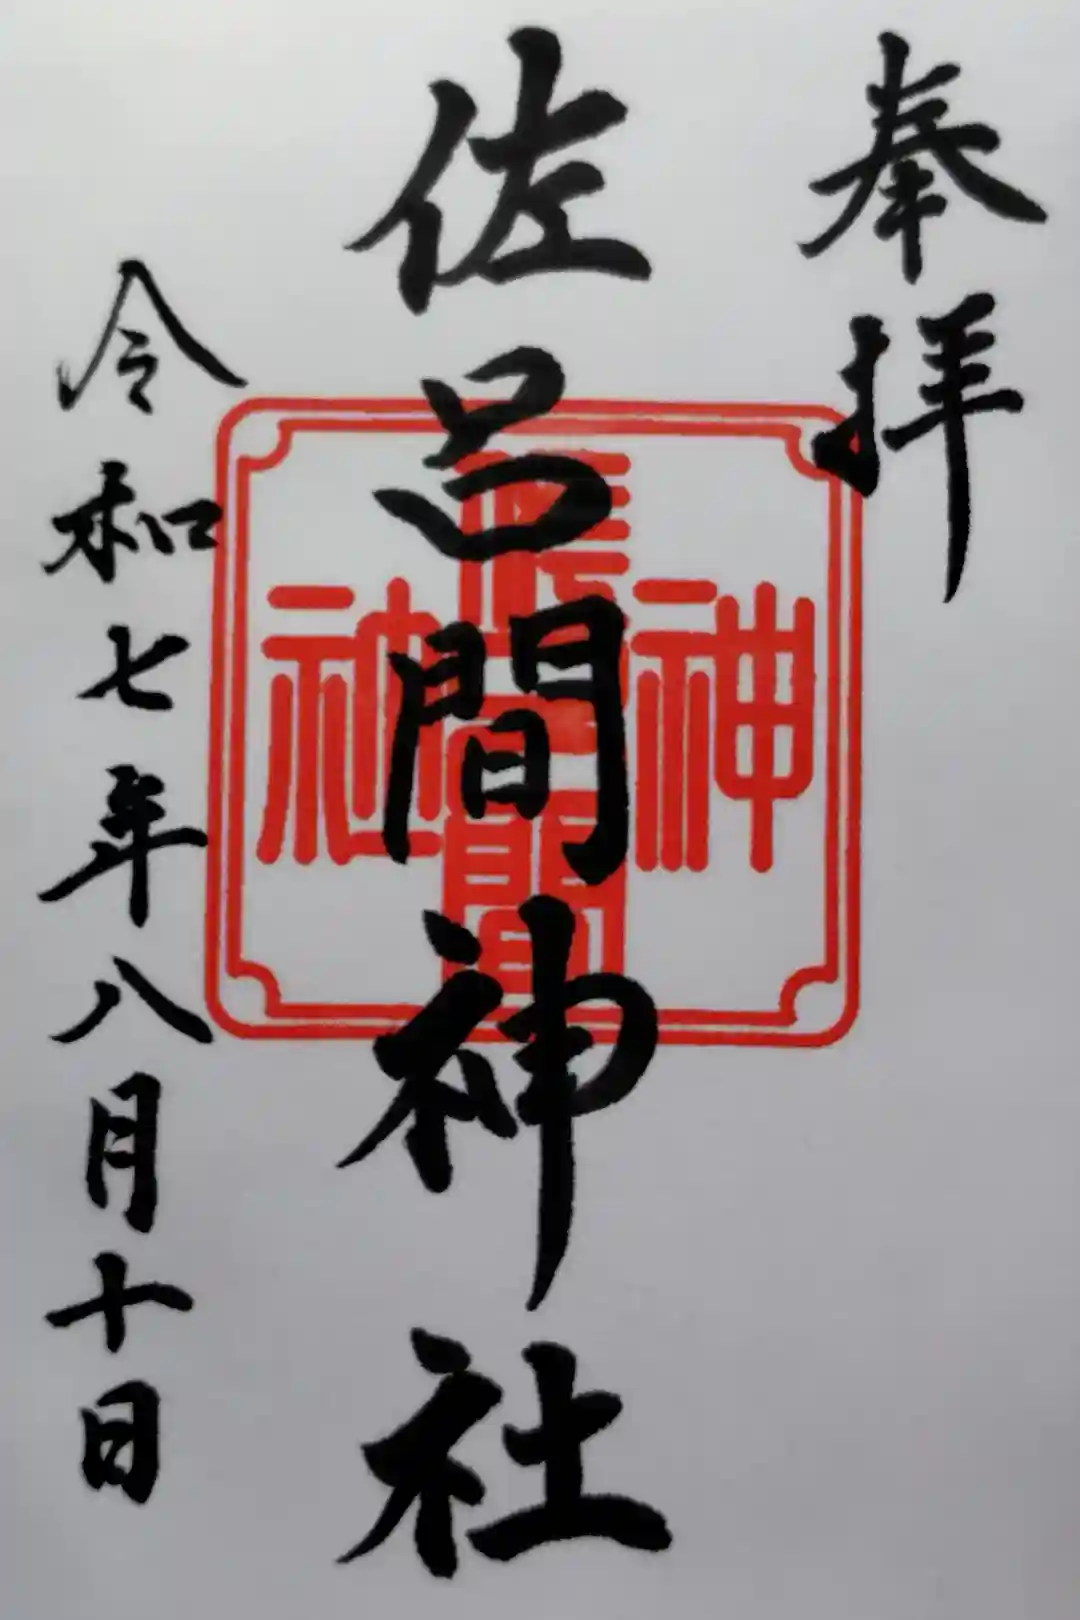 奉拝
佐呂間神社
令和七年八月十日